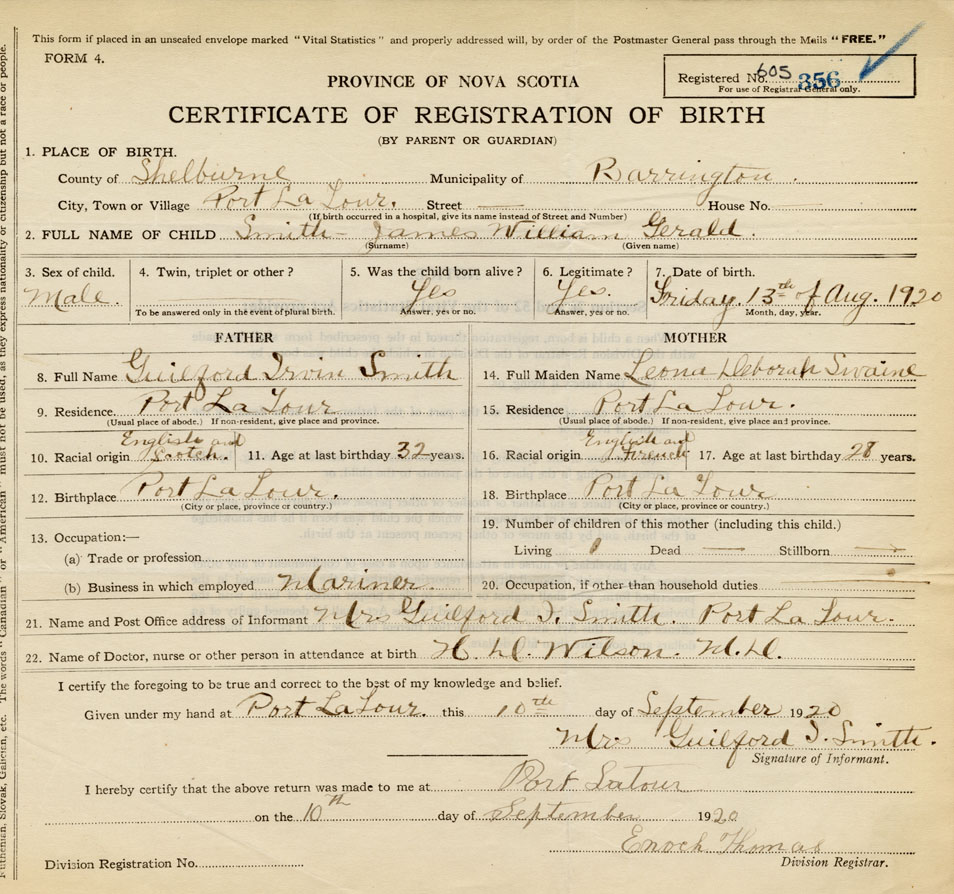 This form if placed in an unsealed envelope marked "Vital Statistics" and properly addressed will, by order of the Postmaster General pass through the Mails "FREE."
FORM 4.
Registered No. 605 356
For use of Registrar General only.
PROVINCE OF NOVA SCOTIA
CERTIFICATE OF REGISTRATION OF BIRTH
(BY PARENT OR GUARDIAN)
1. PLACE OF BIRTH.
County of Shelburne Municipality of Barrington.
City, Town or Village Port La Tour. Street — House No.
(If birth occurred in a hospital, give its name instead of Street and Number)
2. FULL NAME OF CHILD Smith - James William Gerald.
(Surname) (Given name)
3. Sex of child. 4. Twin, triplet or other? 5. Was the child born alive? 6. Legitimate? 7. Date of birth.
Male. Yes Yes. Friday. 13th of Aug. 1920
To be answered only in the event of plural birth. Answer, yes or no. Answer, yes or no. Month, day, year.
FATHER MOTHER
8. Full Name Guilford Irvin Smith 14. Full Maiden Name Leona Deborah Swaine
9. Residence. Port La Tour 15. Residence Port La Tour.
(Usual place of abode.) If non-resident, give place and province. (Usual place of abode.) If non-resident, give place and province.
English and English and
10. Racial origin Scotch. 11. Age at last birthday 32 years. 16. Racial origin French 17. Age at last birthday 28 years.
12. Birthplace Port La Tour. 18. Birthplace Port La Tour
(City or place, province or country.) (City or place, province or country.)
13. Occupation:— 19. Number of children of this mother (including this child.)
(a) Trade or profession Living 1 Dead — Stillborn —
(b) Business in which employed Mariner. 20. Occupation, if other than household duties
21. Name and Post Office address of Informant Mrs Guilford I. Smith. Port La Tour.
22. Name of Doctor, nurse or other person in attendance at birth H. D. Wilson. M.D.
I certify the foregoing to be true and correct to the best of my knowledge and belief.
Given under my hand at Port La Tour. this 10th day of September 1920
Mrs Guilford I. Smith.
Signature of Informant.
I hereby certify that the above return was made to me at Port Latour
on the 10th day of September 1920
Enoch Thomas
Division Registration No. Division Registrar.
Ruthenian, Slovak, Galician, etc. The words "Canadian" or "American" must not be used, as they express nationality or citizenship but not a race or people.